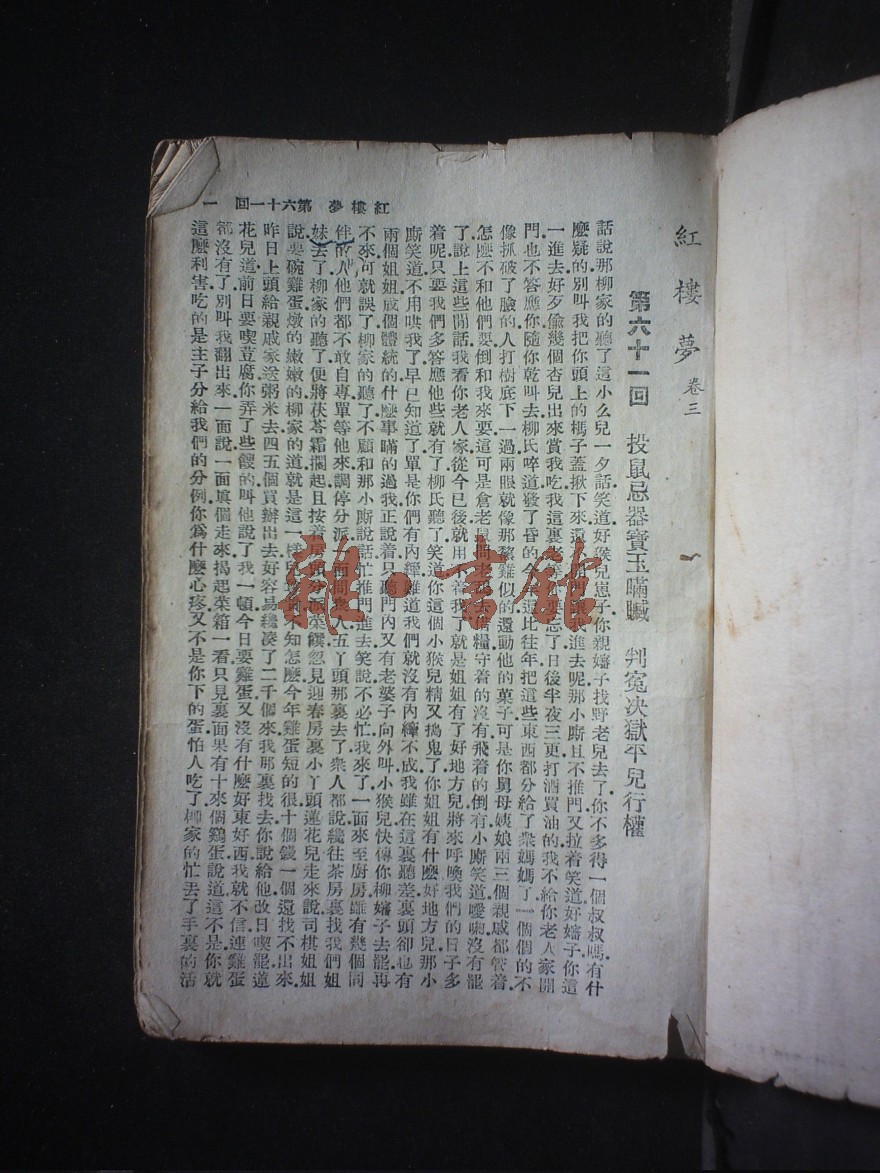 紅樓夢 卷三
紅樓夢 第六十一回 一
第六十一回 投鼠忌器寶玉瞞贓 判冤決獄平兒行權
話說那柳家的聽了這小么兒一夕話笑道好猴兒崽子你親嬸子找野老兒去了你不多得一個叔叔嗎有什
麼疑的別叫我把你頭上的榪子蓋揪下來還不開門讓我進去呢那小廝且不推門又拉着笑道好嬸子你這
一進去好歹偷幾個杏兒出來賞我吃我這裏老等你要忘了日後半夜三更打酒買油的我不給你老人家開
門也不答應你隨你乾叫去柳氏啐道發了昏的今年還比往年把這些東西都分給了衆媽媽了一個個的不
像抓破了臉的人打樹底下一過兩眼就像那黧雞似的還動他的菓子可是你舅母姨娘兩三個親戚都管着
怎麼不和他們要倒和我來要這可是倉老鼠問老鴰去借糧守着的沒有飛着的倒有小廝笑道噯喲沒有罷
了說上這些閒話我看你老人家從今已後就用不着我了就是姐姐有了好地方兒將來呼喚我們的日子多
着呢只要我們多答應他些就有了柳氏聽了笑道你這個小猴兒精又搗鬼了你姐姐有什麼好地方兒那小
廝笑道不用哄我了早已知道了單是你們有內縴難道我們就沒有內縴不成我雖在這裏聽差裏頭卻也有
兩個姐姐成個體統的什麼事瞞的過我正說着只聽門內又有老婆子向外叫小猴兒快傳你柳嬸子去罷再
不來可就誤了柳家的聽了不顧和那小廝說話忙推門進去笑說不必忙我來了一面來至廚房雖有幾個同
伴的人他們都不敢自專單等他來調停分派一面問衆人五丫頭那裏去了衆人都說纔往茶房裏找我們姐
妹去了柳家的聽了便將茯苓霜擱起且按着房頭分派菜饌忽見迎春房裏小丫頭蓮花兒走來說司棋姐姐
說要碗雞蛋燉的嫩嫩的柳家的道就是這一樣兒尊貴不知怎麼今年雞蛋短的很十個錢一個還找不出來
昨日上頭給親戚家送粥米去四五個買辦出去好容易纔湊了二千個來我那裏找去你說給他改日喫罷蓮
花兒道前日要喫荳腐你弄了些餿的叫他說了我一頓今日要雞蛋又沒有什麼好東好西我就不信連雞蛋
都沒有了別叫我翻出來一面說一面真個走來揭起菜箱一看只見裏面果有十來個鷄蛋說道這不是你就
這麼利害吃的是主子分給我們的分例你爲什麼心疼又不是你下的蛋怕人吃了柳家的忙丟了手裏的活
雜·書館